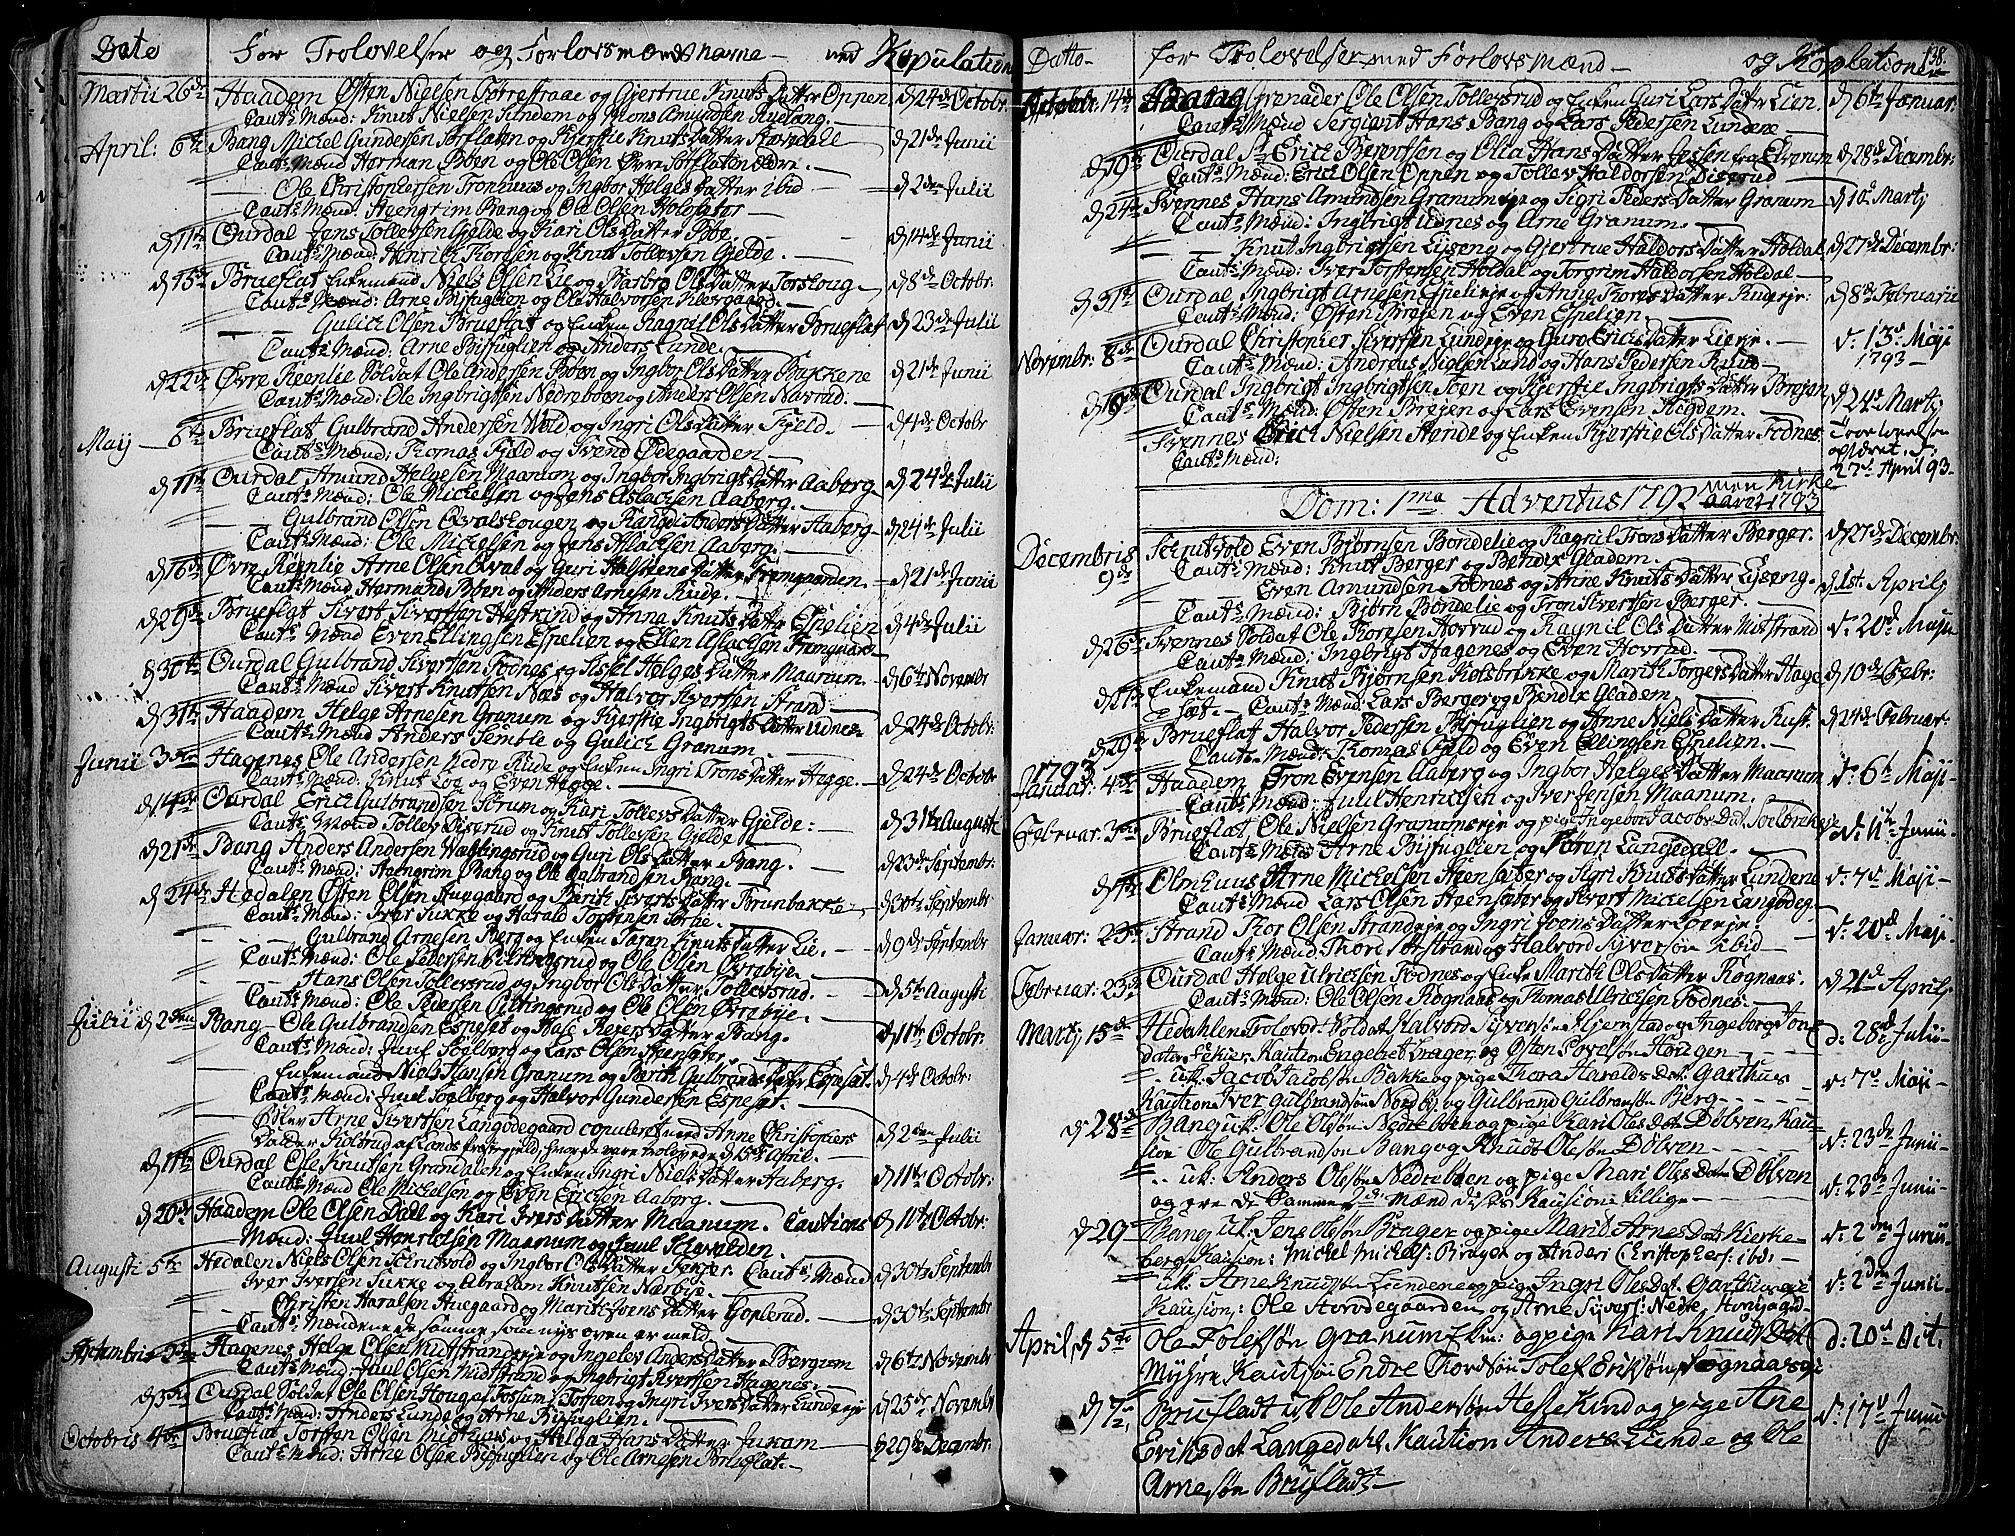 Dato For Trolovelser og Forlovsmænds navne — ved Kopulation
Martii 26de Haadem Østen Nielsen Gøtrestraae og Gjertrue Knuts Datter Oppen, d 24de Octobr:
Cauts: Mænd: Knut Nielsen Sundem og Mons Amundsen
April: 6te Bang Michel Gundersen Torflaten og Kjerstie Knuts Datter d 21de Junii
Cauts: Mænd Herman Boen og Ole Olsen Øvre Torflaten
Ole Christophersen Tronhuus og Ingbor Helges Datter ibid — d 2den Julii
Cauts: Mænd: Heengrim Bang og Ole Olsen Holesæter —
d 11te Ourdal Jens Tollevsen Gjelde og Kari Ols Datter Boe — d 14de Junii
Cauts: Mænd: Henrich Thoresen og Knut Tollevsen Gjelde. —
d 15de Brueflat Enkemand Niels Olsen Lie og Barbro Ols Datter d 8de Octobr:
Cauts: Mænd: Arne Bisfuglien og Ole Halvorsen Klevgaard. —
Gulich Olsen Brueflat og Enken Ragnil Ols Datter Brueflat d 23de Julii
Cauts: Mænd: Arne Bisfuglien og Anders Lunde. —
d 22de Øvre Reenlie Soldat Ole Andersen Boen og Ingbor Ols Datter Bakkene d 21de Junii
Cauts: Mænd: Ole Ingbrigtsen Nedreboen og Anders Olsen
May — 6te Brueflat Gulbrand Andersen Wold og Ingri Ols Datter Fjeld. — d 4de Octobr
Cauts: Mænd: Thomas Fjeld og Svend Ødegaarden —
d 11te Ourdal Amund Helgesen Maanum og Ingbor Ingbrigts Datter Aaberg — d 24de Julii
Cauts: Mænd: Ole Michelsen og Jens Aslachsen Aaberg. —
Gulbrand Olsen Qvalshougen og Rangdi Anders Datter Aaberg — d 24de Julii
Cauts: Mænd: Ole Michelsen og Jens Aslachsen Aaberg. —
d 16de Øvre Reenlie Arne Olsen Qval og Guri Halstens Datter Fremgaarden. — d 21de Junii
Cauts: Mænd Hermand Boen og Anders Arnesen Rude. —
d 29de Brueflat Sivert Siversen Hestekind og Anna Knuts Datter Espelien d 4de Julii
Cauts: Mænd Even Ellingsen Espelien og Ellen Aslachsen Fremgaard
d 30te Ourdal Gulbrand Sivertsen Fodnes og Sissel Helges Datter Maanum. — d 6te Novembr
Cauts: Mænd Sivert Knutsen Næs og Halvor Iversen Strand —
d 31te Haadem Helge Arnesen Granum og Kjerstie Ingbrigts Datter Udnes — d 24de Octobr:
Cauts: Mænd Anders Semble og Gulich Granum. —
Junii 3die Hagenes Ole Andersen Nedre Rude og Enken Ingri Trons Datter Hegge. d 24de Octobr
Cauts: Mænd: Knut Loe og Even Hegge. —
d 14de Ourdal Erich Gulbrandsen Forum og Kari Tollevs Datter Gjelde: — d 31te Augusti
Cauts: Mænd Tollev Diserud og Knut Tollevsen Gjelde
d 21de Bang Anders Andersen og Guri Ols Datter Bang. d 23de Septembr:
Cauts: Mænd: Heengrim Bang og Ole Gulbrandsen Bang. —
d 24de Hedalen Østen Olsen Huegaard og Berit Siverts Datter Brunbakke — d 30te Septembr:
Cauts: Mænd: Iver Sukke og Harald Torstensen
Gulbrand Arnesen Berg og Enken Taran Knuts Datter Lie. d 9de Septembr
Cauts: Mænd: Ole Pedersen og Ole Olsen Øvrebye. —
Hans Olsen Tollevsrud og Ingbor Ols Datter Tollevsrud. — d 5te Augusti
Cauts: Mænd: Ole og Ole Olsen Øvrebye. —
Julii d 2den Bang — Ole Gulbrandsen Espeset og Datter Bang. d 11te Octobr:
Cauts: Mænd: Juul Soelberg og Lars Olsen
Enkemand Niels Hansen Granum og Barith Gulbrands Datter Espeset. d 4de Octobr:
Cauts: Mænd: Juul Soelberg og Halvor Gundersen Espeset. —
Arne Sivertsen Langødegaard copuleret med Anne Christophers d 2den Julii
Datter af Lands Præstegjeld, hvor de vare trolovede d 15de April. —
d 11te Ourdal Ole Knutsen Grandalen og Enken Ingri Niels Datter Aaberg. d 11te Octobr:
Cauts: Mænd Ole Michelsen og Even Erichsen Aaberg. —
d 20de Haadem Ole Olsen Dall og Kari Ivers Datter Maanum. Cautions d 11te Octobr:
Mænd: Juul Henrichsen Maanum og Juul
Augusti 5te Hedalen Niels Olsen Schrutvold og Ingbor Ols Datter Cauts: Mænd d 30te Septembr
Iver Iversen Sukke og Abraham Knutsen Nærbye. —
Christen Haralsen Huegaard og Marith Joens Datter Goplerud. d 30te Septembr
Cauts: Mændene de samme som nys oven er meld. —
Septembris 2den Hagenes Helge Olsen Midtstrandeje og Ingelev Anders Datter Bergum d 6te Novembr
Cauts: Mænd: Paul Olsen Midtstrand og Ingbrigt Iversen Hagenes. —
d 3die Ourdal Soldat Ole Olsen Houget og Ingri Ivers Datter Lundeeje d 23de Novembr
Cauts: Mænd: Anders Lunde og Arne Bisfuglien. —
Octobris 4de Brueflat Torsten Olsen og Helga Hans Datter — d 29de Decembr:
Cauts: Mænd: Arne Olsen Bisfuglien og Ole Arnesen Brueflat. —
Datto — for Trolovelser med Forlovsmænd — og Koplationer 138.
Octobr: 14de Bang Grenader Ole Olsen Tollevsrud og Enken Guri Lars Datter Lien. d 6te Januar.
Cauts: Mænd Sergiant Hans Bang og Lars Pedersen Lundere —
d 19de Ourdal Sr Erich Berentsen og Olia Hans Datter Jessen fra Ekronn d 28de Decembr:
Cauts: Mænd: Erich Olsen Oppen og Tollev Haldorsen Diserud
d 24de Svennes Hans Amundsen Granumeje og Sigri Peders Datter Granum d 10de Martj
Cauts: Mænd: Ingbrigt Udnes og Arne Granum. —
— Knut Ingbrigtsen Lyseng og Gjertrue Haldors Datter Holdal — d 27de Decembr:
Cauts: Mænd: Iver Torstensen Holdal og Torgrim Haldorsen Holdal —
d 31te Ourdal Ingbrigt Arnesen Espelieeje og Anne Thores Datter d 8de Februarii
Cauts: Mænd: Østen Brøjen og Even Espelien. —
Novembr: 8de Ourdal Christopher Siversen Lundeeje og Guro Erichs Datter Lieeje. d: 13de Maji 1793 —
Cauts: Mænd: Andreas Nielsen Lund og Hans Pedersen Ruud —
d 19de Ourdal Ingbrigt Ingbrigtsen og Kjerstie Ingbrigts Datter Brøjen d 24de Martj
Cauts: Mænd: Østen Brøjen og Lars Evensen Hegdem. —
Svennes Erich Nielsen Hende og Enken Kjerstie Ols Datter Fodnes Troelovelsen ophævet d: 27de April 93 —
Cauts: Mænd:
Dom: 1ma Adventus 1792 men Kirke Aaret 1793
Decembris 9de Schrutvold Even Bjørnsen Bøndelie og Ragnil Trons Datter Berger. d 27de Decembr:
Cauts: Mænd: Knut Berger og Bendix Gladem. —
Even Amundsen Fodnes og Arne Knuts Datter Lyseng. — d 1st. Aprilj
Cauts: Mænd: Bjørn Bøndelie og Tron Sivertsen Berger. —
d 26de Svennes Soldat Ole Thoresen Hovrud og Ragnil Ols Datter Mitstrand d: 20de Maji
Cauts: Mænd: Ingbrigt Hagenes og Even Hovrud. —
d 21de Enkemand Knut Bjørnsen Kolsbrikke og Marith Torgers Datter Hage d 10de Febr:
sæt — Cauts: Mænd Lars Berger og Bendix Gladem. —
d 29de Brueflat Halvor Pedersen Bisfuglien og Anne Niels Datter Rust. d 24de Februar:
Cauts: Mænd: Thomas Fjeld og Even Ellingsen Espelien. —
1793
Januar: 4de Haadem Tron Evensen Aaberg og Ingbor Helges Datter Maanum d: 6te Maji —
Cauts: Mænd: Juul Henrichsen og Iver Jensen Maanum.
Februar: 3die Brueflat Ole Nielsen Granumseje og pige Ingebor Jacobs Dat. Soelbrekeje d: 11te Junii —
Cauts: Mænd Arne Bisfuglien og Søren Langedall. —
d 4de Olmhuus Arne Michelsen Steensæter og Sigri Knuts Datter Lundene d: 7de Maji —
Cauts: Mænd Lars Olsen Steensæter og Sivert Michelsen Langødeg —
Januar: 23de Strand Thor Olsen Strandeje og Ingri Joens Datter Loeeje: d: 20de Maji —
Cauts: Mænd: Thord Strand og Halvord Syversøn ibid —
Februar: 23de Ourdal Helge Ulrichsen Fodnes og Enke Marith Ols Datter Rognaas. — d 21de April,
Cauts: Mænd: Ole Olsen Rognaas og Thomas Ulrichsen Fodnes —
Martj 15de Hedahlen Trolovd: Soldat Halvord Syversøn Hjemstad og Ingeborg Jons d: 28de Julii —
dater Kaution Engebret Brager, og Østen Povelsøn Hougen — — —
.. uk: Jacob Jacobsøn Bakke og pige Thora Haralds Dat: Garthuus d: 7de Maji —
Kaution Iver Gulbrandsøn Nordby, og Gulbrand Gulbransøn Berg — — — —
d 28de Bang uk: Ole Olsøn og pige Kari Oles Dat: Dølven, Kau- d: 23de Junii —
sion Ole Gulbrandsøn Bang og Knud Olsøn Dølven
.. uk: Anders Olsøn Nedreboen og pige Mari Oles Dat: Dølven d: 23de Junii —
og ere de samme 2de Mænd disses Kausion tillige —
d 29de Bang uk: Jens Olsøn Brager og pige Marit Arnes Dat: Kirke- d: 2den Junii —
berg Kausion: Michel Michels: Brager og Anders Christophers: ibd:
uk: Arne Knudsøn Lundene og pige Ingri Oles Dat: Garthuuseje d: 2den Junii —
Kausion: Ole Horvdegaarden og Arne Syvers: Nedre
April, d 5te Ole Tolefsøn Granum Ekm: og pige Kari Knuds Dat: d: 20de Oct.
Myhre Kautsion Endre Thordsøn Tolef Eriksøn
d 7de Brufladt uk Ole Andersøn Hestekind og pige Ane d: 17de Junii
Eriks dat Langedahl. Kaution Anders Lunde og Ole
Arnesøn Brufladt —